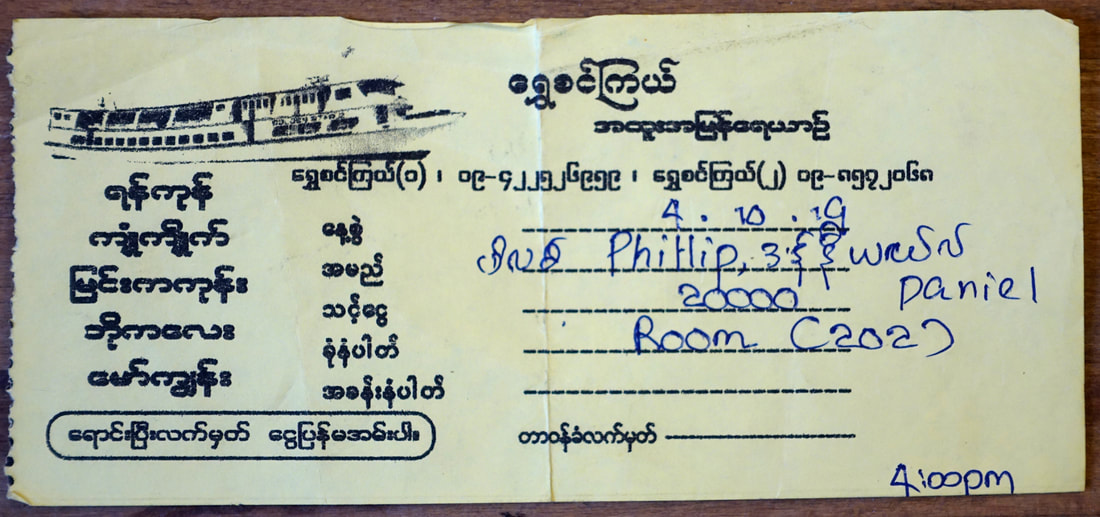 ရွှေစင်ကြယ်
အထူးအမြန်ရေယာဉ်
ရွှေစင်ကြယ်(၁) ၊ ၀၉-၄၂၂၅၂၆၉၅၉ ၊ ရွှေစင်ကြယ်(၂) ၀၉-၈၅၇၂၀၆၈
ရန်ကုန်
ကျုံကျိုက်
မြင်းကကုန်း
ဘိုကလေး
မော်ကျွန်း
နေ့စွဲ 4.10.19
အမည် ဖါလစ် Phillip, ဒန်နီယယ်လ် Daniel
သင့်ငွေ 20000
ခုံနံပါတ် Room (202)
အခန်းနံပါတ်
ရောင်းပြီးလက်မှတ် ငွေပြန်မအမ်းပါ။
တာဝန်ခံလက်မှတ်
4:00pm